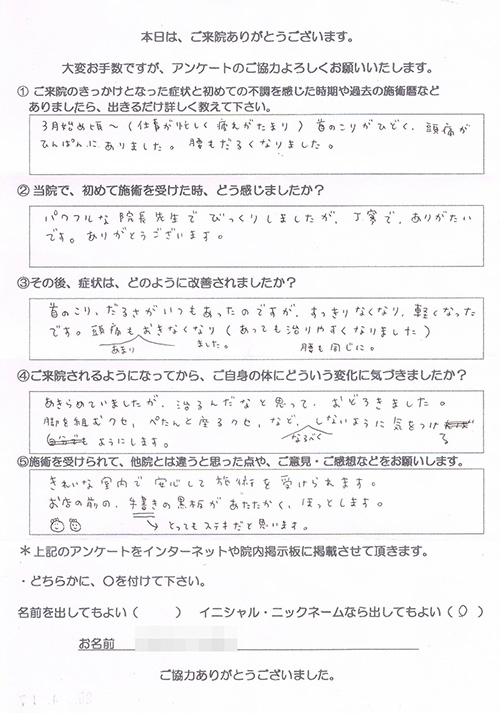 本日は、ご来院ありがとうございます。
大変お手数ですが、アンケートのご協力よろしくお願いいたします。
① ご来院のきっかけとなった症状と初めての不調を感じた時期や過去の施術暦など
ありましたら、出きるだけ詳しく教えて下さい。
3月始め頃〜(仕事が忙しく疲れがたまり) 首のこりがひどく、頭痛が
ひんぱんに ありました。腰もだるくなりました。
② 当院で、初めて施術を受けた時、どう感じましたか?
パワフルな院長先生で びっくりしましたが、丁寧で、ありがたい
です。ありがとうございます。
③その後、症状は、どのように改善されましたか?
首のこり、だるさがいつもあったのですが、すっきりなくなり、軽くなった
です。頭痛もおきなくなり(あっても治りやすくなりました)
あまり ました。 腰も同じに。
④ご来院されるようになってから、ご自身の体にどういう変化に気づきましたか?
あきらめていましたが、治るんだなと思って、おどろきました。
脚を組むクセ、ぺたんと座るクセ、など、しないように 気をつけ
なるべく る
ようにします。
⑤施術を受けられて、他院とは違うと思った点や、ご意見・ご感想などをお願いします。
きれいな室内で 安心して 施術を 受けられます。
お店の前の、手書きの黒板が あたたかく、ほっとします。
とってもステキだと思います。
*上記のアンケートをインターネットや院内掲示板に掲載させて頂きます。
・どちらかに、○を付けて下さい。
名前を出してもよい( ) イニシャル・ニックネームなら出してもよい(○)
お名前
ご協力ありがとうございました。